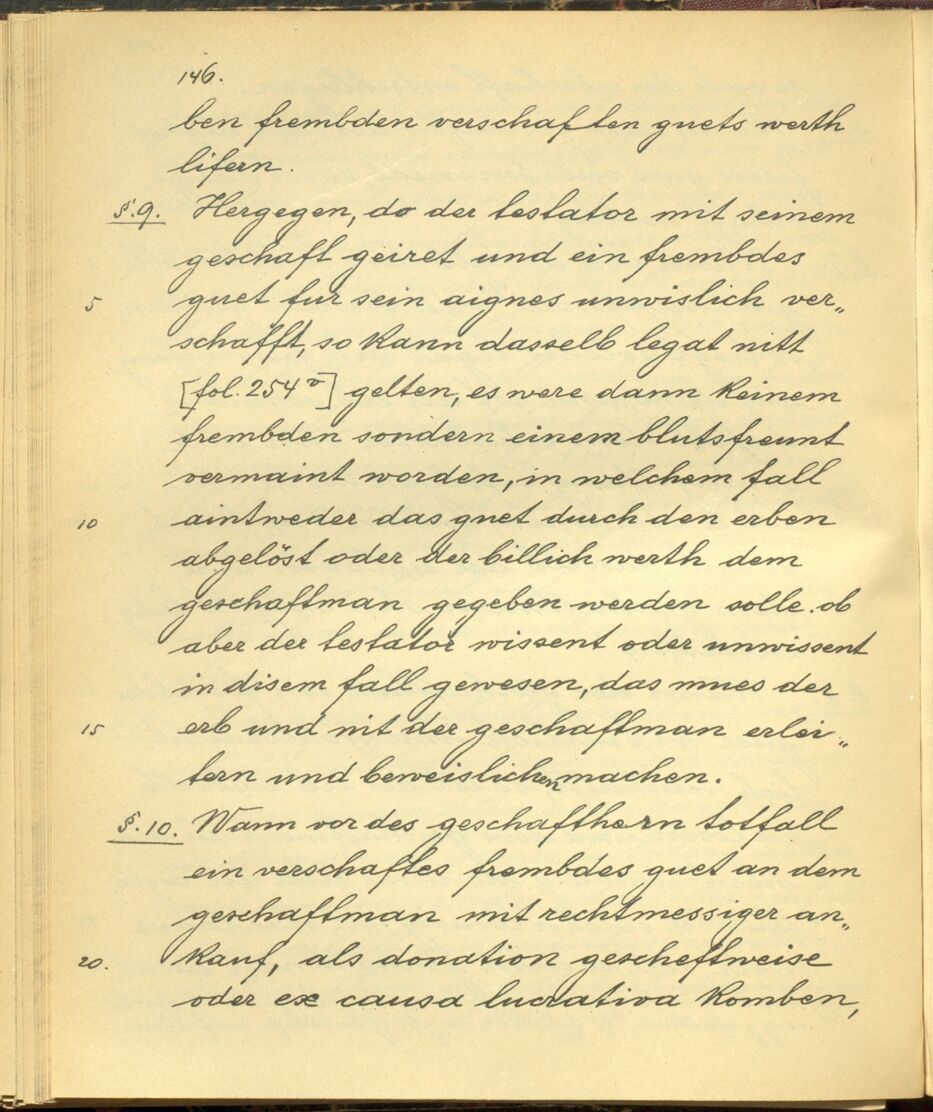 146.
ben frembden verschaften guets werth
lifern.
§.9. Hergegen, do der testator mit seinem
geschaft geiret und ein frembdes
5 guet fur sein aignes unwislich ver„
schafft, so kann dasselb legat nitt
[fol. 254 v] gelten, es were dann keinem
frembden sondern einem blutsfreunt
vermaint worden, in welchem fall
10 aintweder das guet durch den erben
abgelöst oder der billich werth dem
geschaftman gegeben werden solle. ob
aber der testator wissent oder unwissent
in disem fall gewesen, das mues der
15 erb und nit der geschaftman erlei„
tern und beweislichen machen.
§.10. Wann vor des geschafthern totfall
ein verschaftes frembdes guet an dem
geschaftman mit rechtmessiger an„
20. kauf, als donation gescheftweise
oder ex causa lucrativa komben,